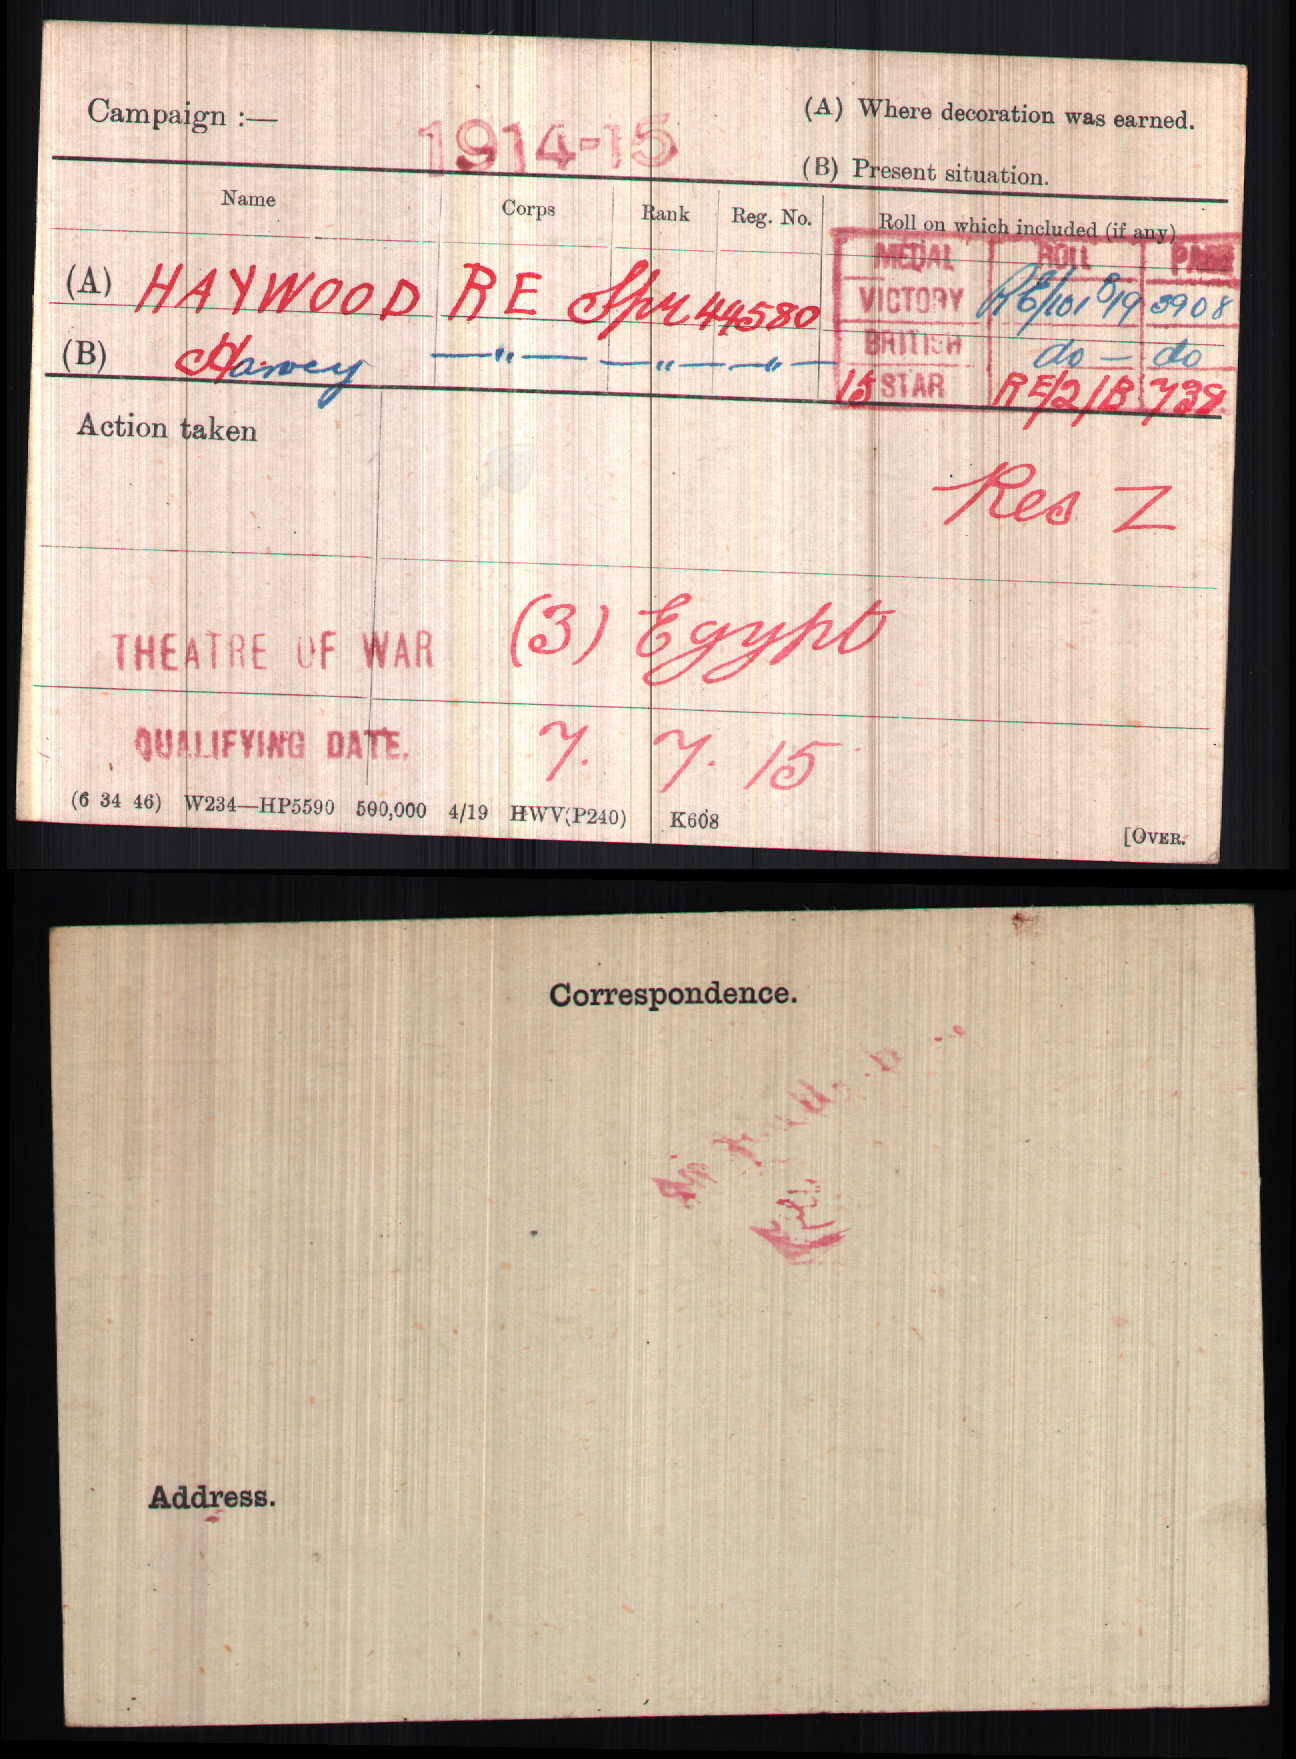 Campaign :—
1914-15
(A) Where decoration was earned.
(B) Present situation.
Name Corps Rank Reg. No. Roll on which included (if any)
MEDAL ROLL PAGE
(A) HAYWOOD R E Spr 44580 VICTORY RE/101 B19 3908
(B) Harvey —"— —"— —"— BRITISH do — do
15 STAR RE/2/B 739
Action taken
Res Z
THEATRE OF WAR (3) Egypt
QUALIFYING DATE. 7. 7. 15
(6 34 46) W234—HP5590 500,000 4/19 HWV(P240) K608
[OVER.
Correspondence.
Address.